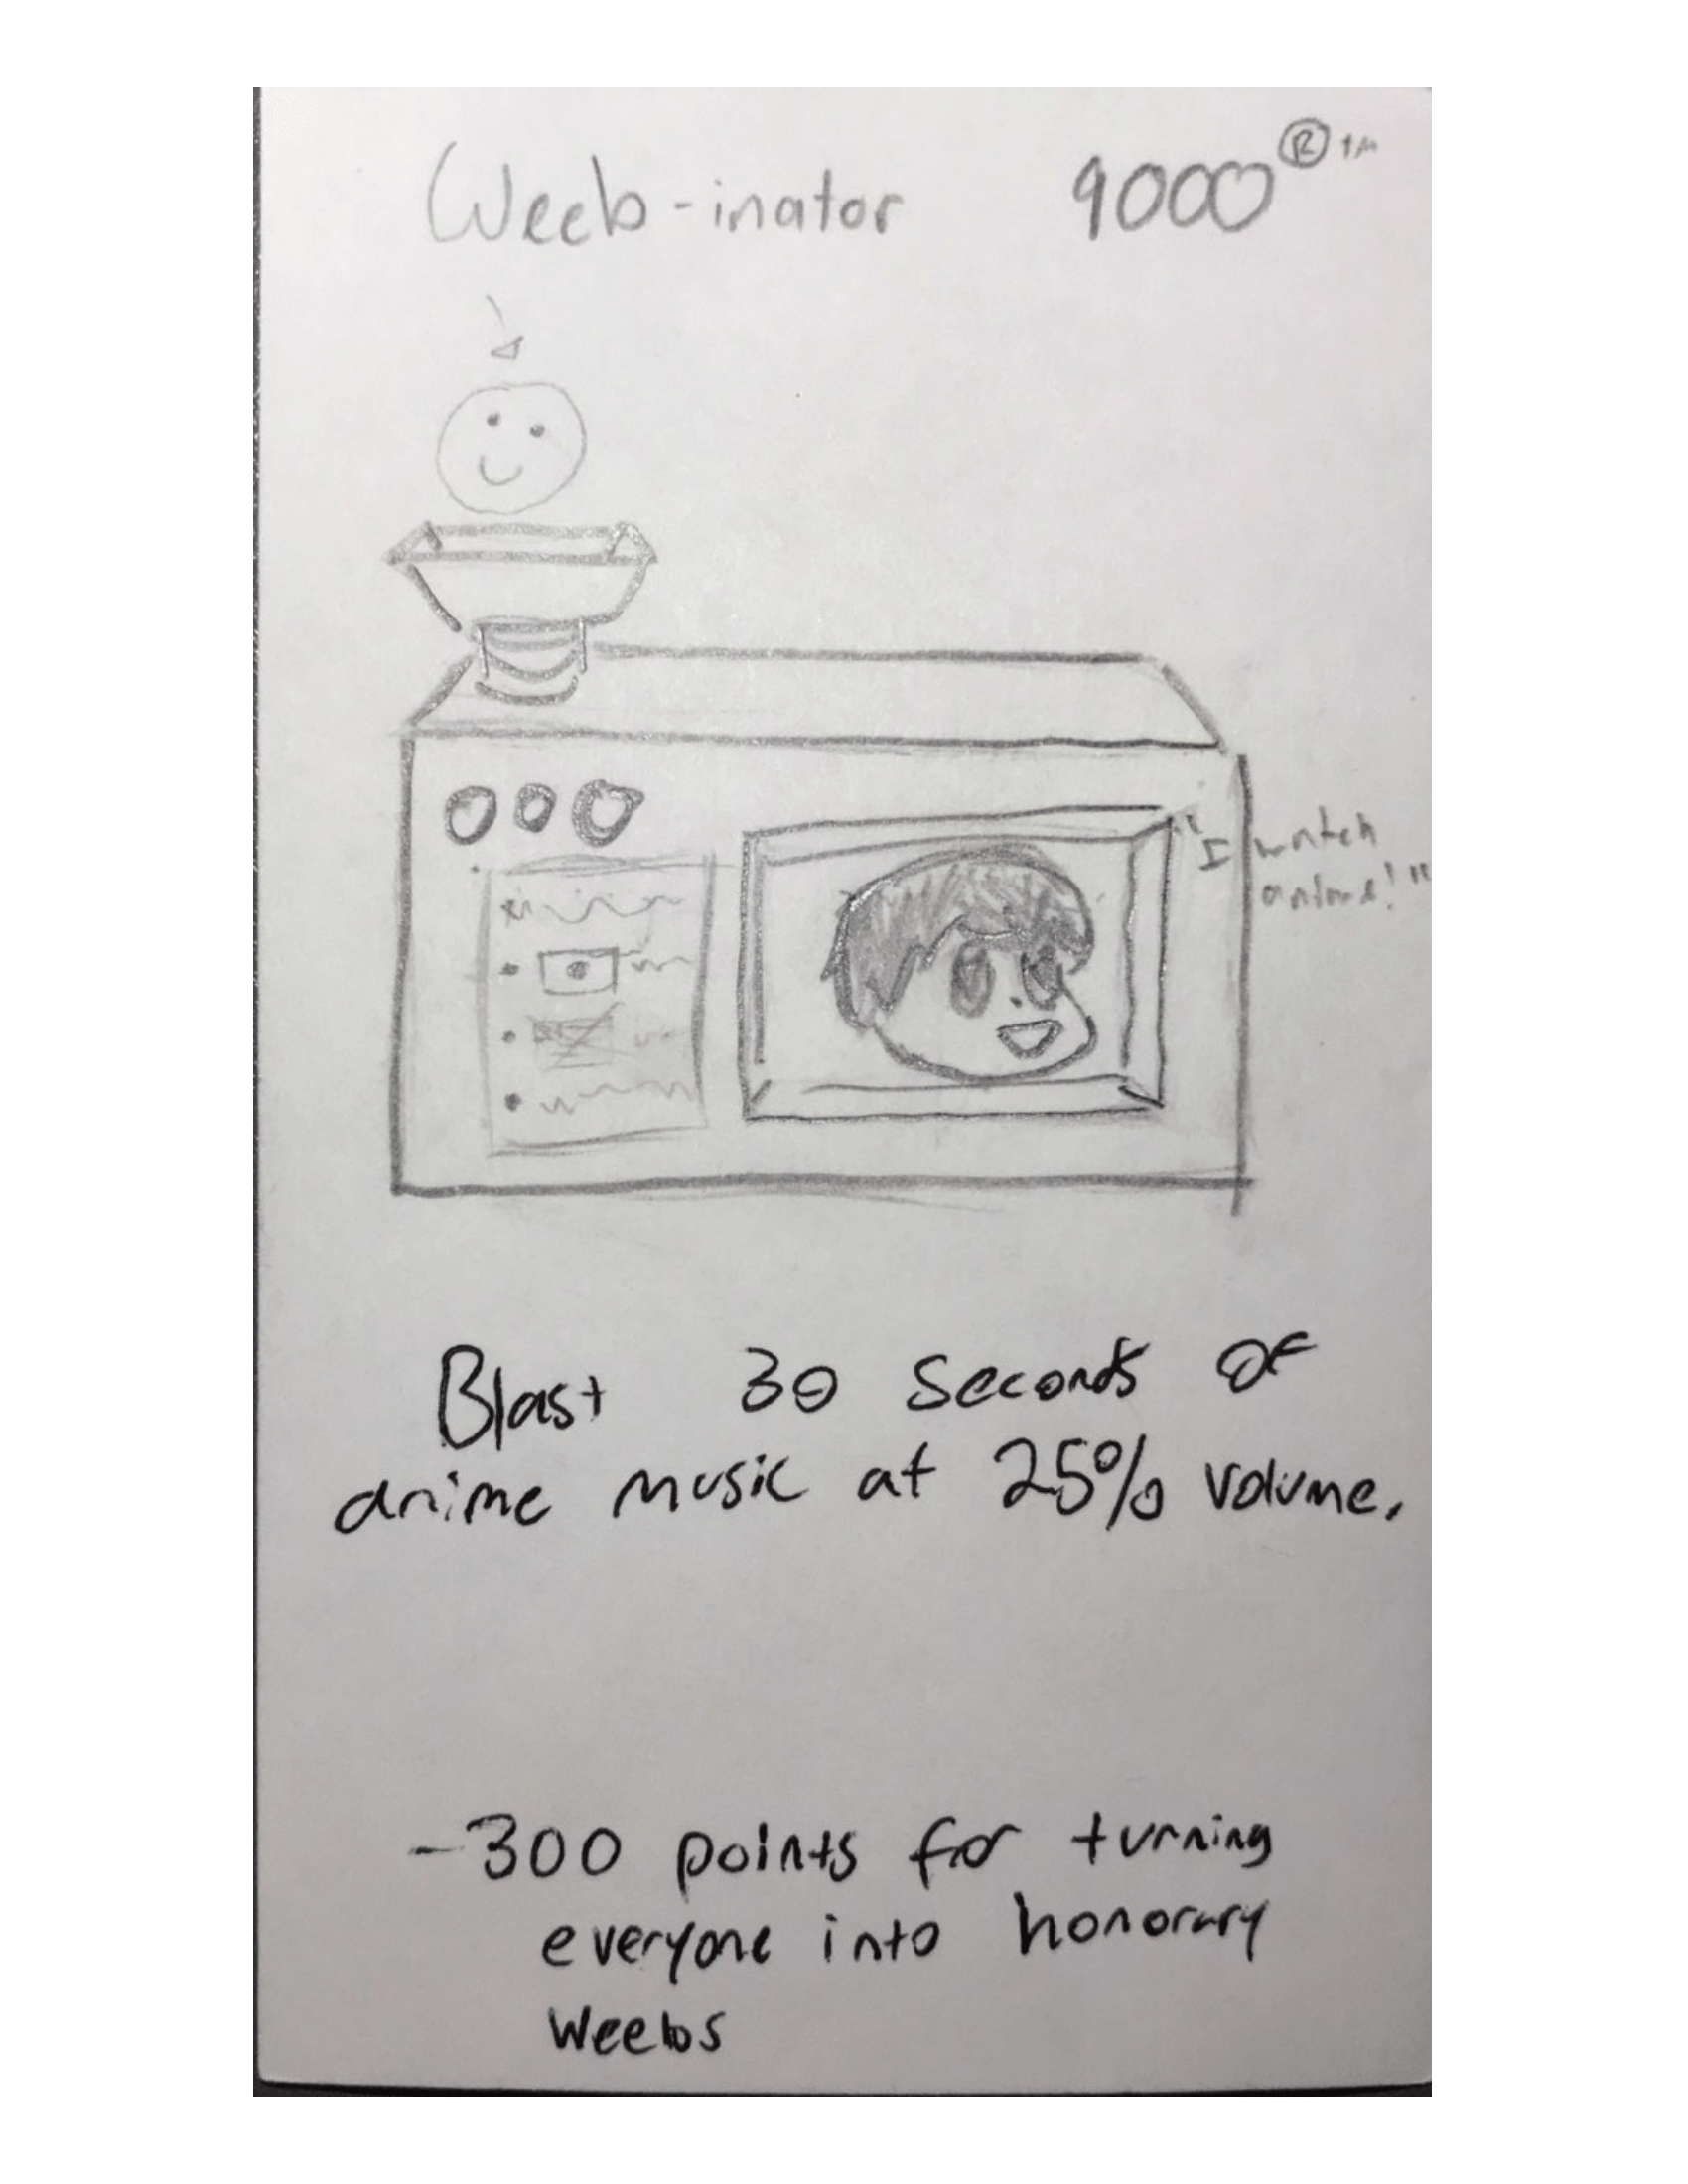 Weeb-inator 9000® ™
"I watch
anime!"
Blast 30 seconds of
anime music at 25% volume.
-300 points for turning
everyone into honorary
weebs